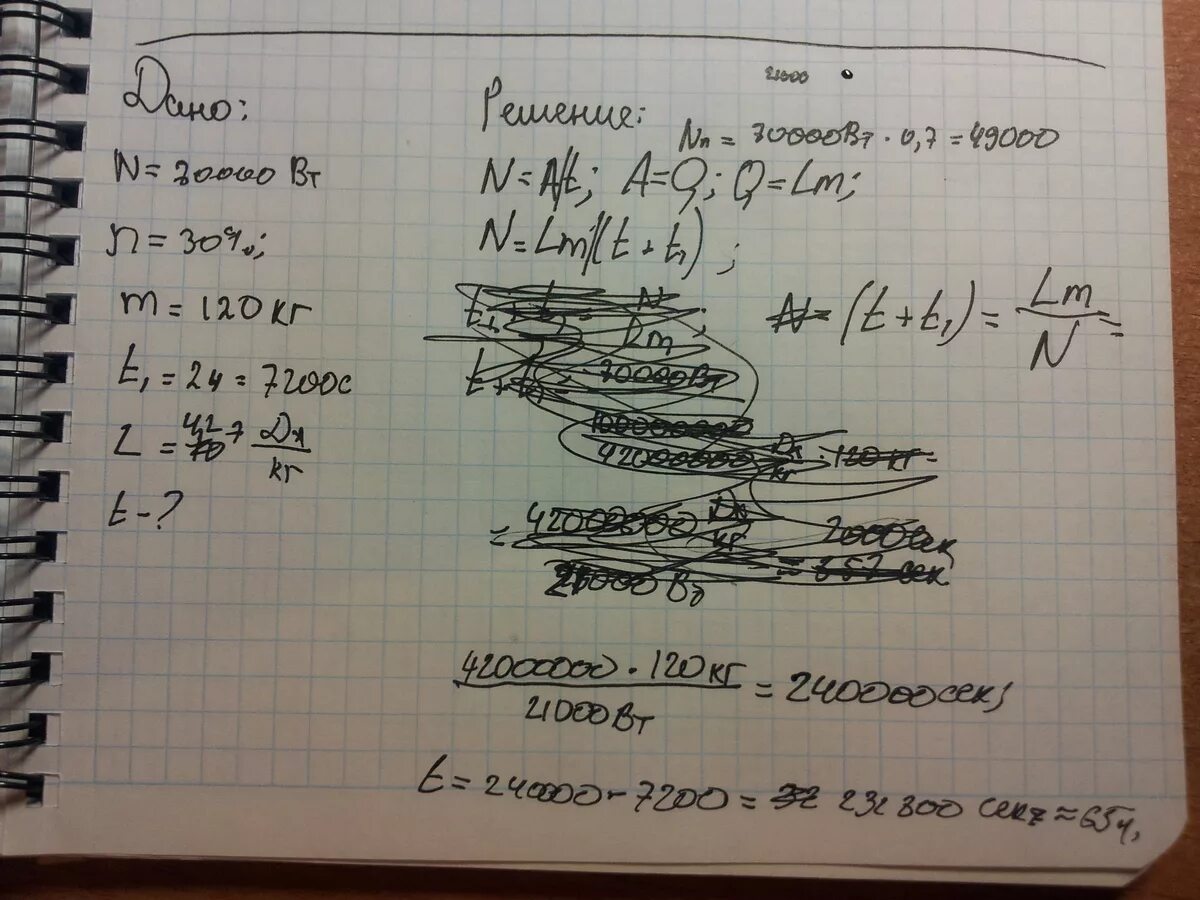 21000
Дано:
N = 70000 Вт
n = 30%;
m = 120 кг
t₁ = 2ч = 7200с
L = 42 7 Дж/кг
t - ?
Решение:
Nп = 70000Вт · 0,7 = 49000
N = A/t; A = Q; Q = Lm;
N = Lm/(t + t₁);
(t + t₁) = Lm/N =
42000000 · 120кг / 21000Вт = 240000сек;
t = 240000 - 7200 = 232 800 сек ≈ 65ч,